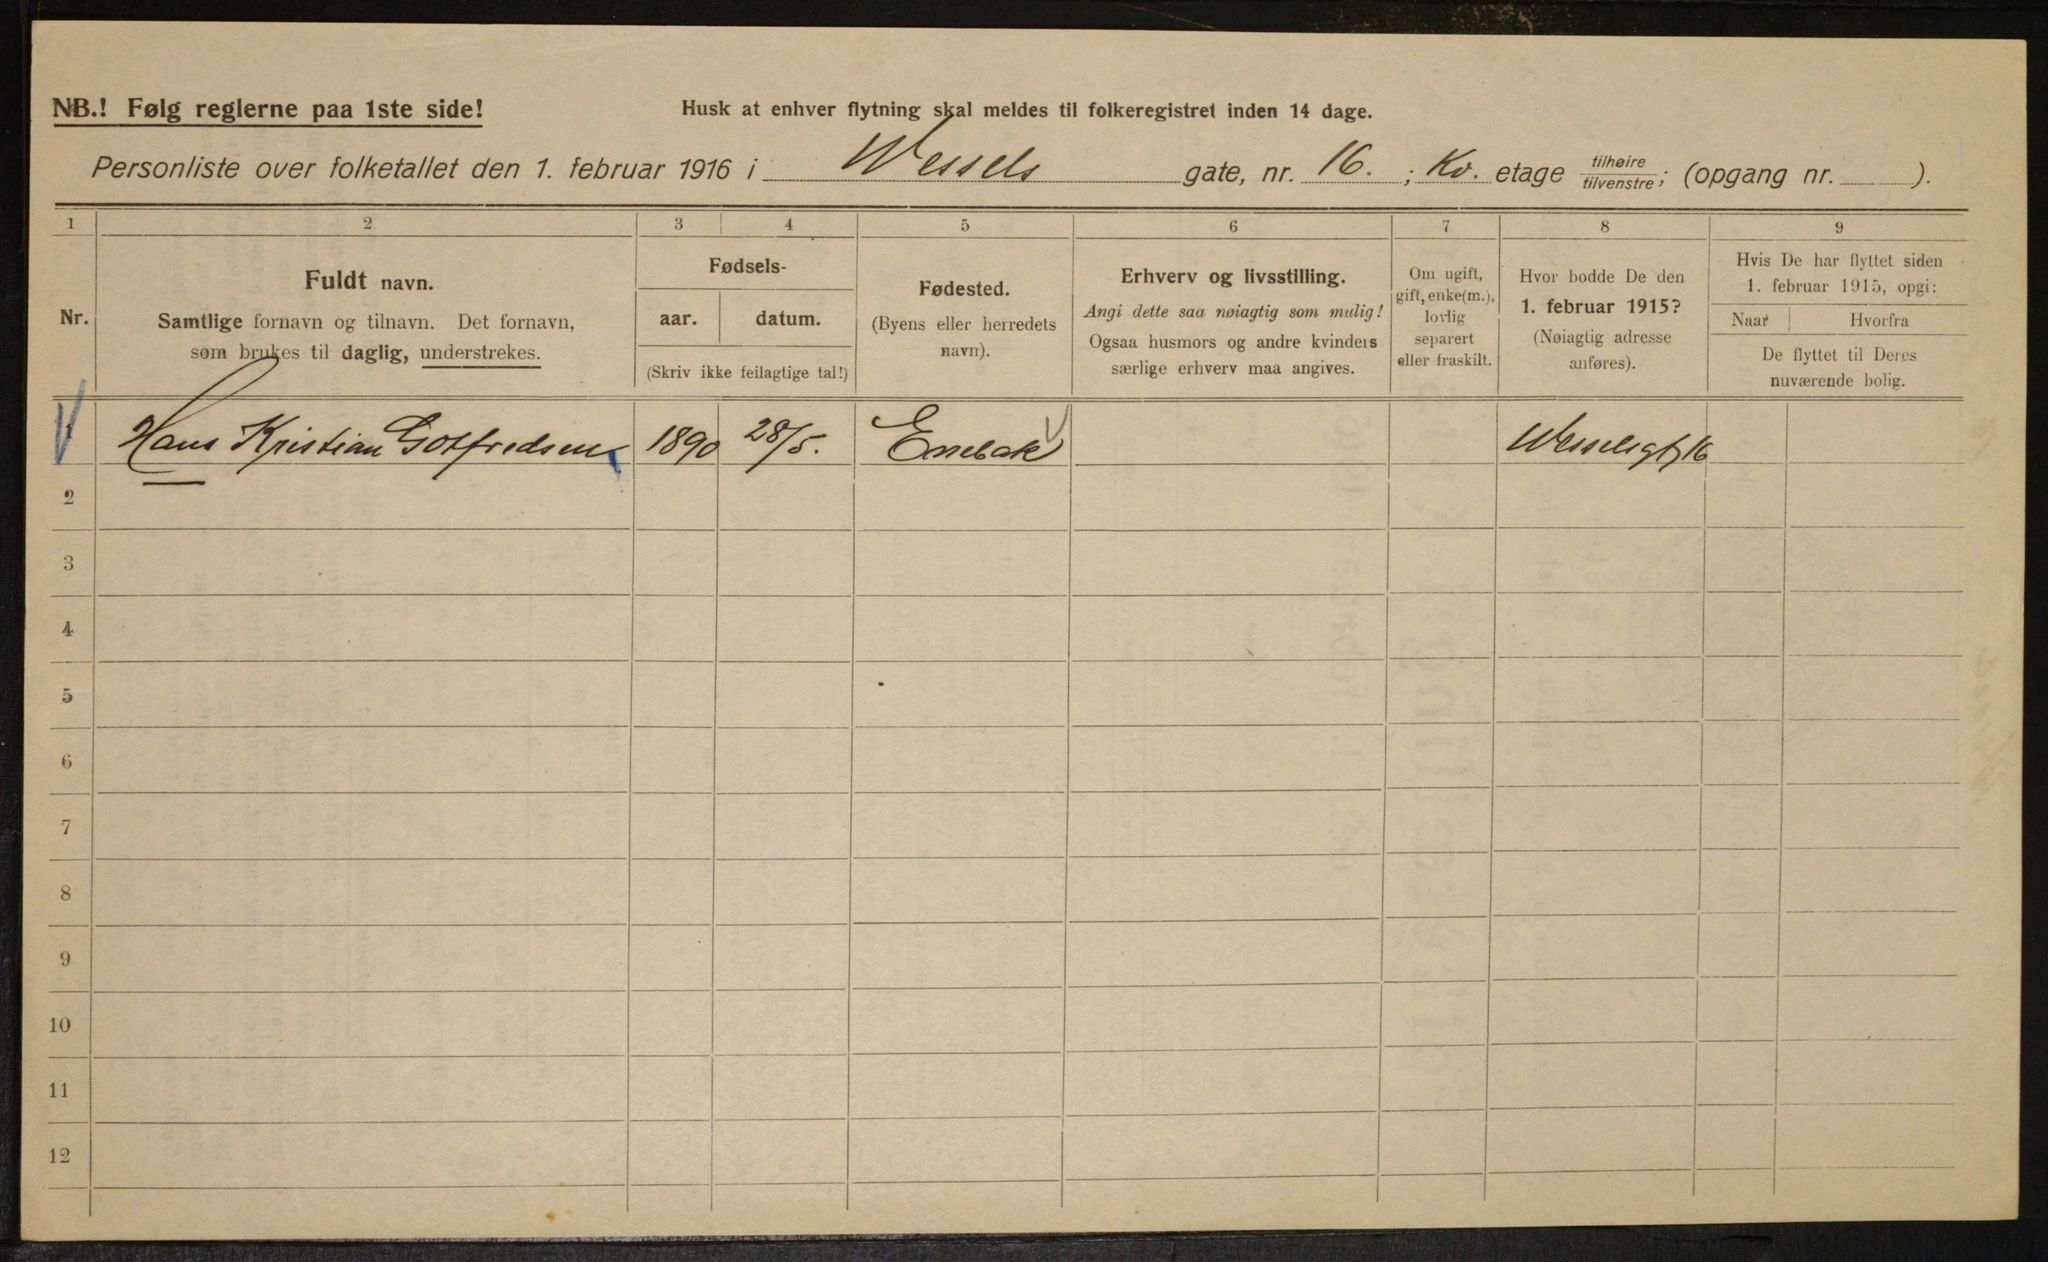 NB.! Følg reglerne paa 1ste side!
Husk at enhver flytning skal meldes til folkeregistret inden 14 dage.
Personliste over folketallet den 1. februar 1916 i Wessels gate, nr. 16. ; Kv. etage tilhøire / tilvenstre; (opgang nr. ).
1 2 3 4 5 6 7 8 9
Nr.
Fuldt navn.
Samtlige fornavn og tilnavn. Det fornavn,
som brukes til daglig, understrekes.
Fødsels-
aar. datum.
(Skriv ikke feilagtige tal!)
Fødested.
(Byens eller herredets
navn).
Erhverv og livsstilling.
Angi dette saa nøiagtig som mulig!
Ogsaa husmors og andre kvinders
særlige erhverv maa angives.
Om ugift,
gift, enke(m.),
lovlig
separert
eller fraskilt.
Hvor bodde De den
1. februar 1915?
(Nøiagtig adresse
anføres).
Hvis De har flyttet siden
1. februar 1915, opgi:
Naar Hvorfra
De flyttet til Deres
nuværende bolig.
1 Hans Kristian Gotfredsen 1890 28/5. Enebak Wesselsgt 16
2
3
4
5
6
7
8
9
10
11
12